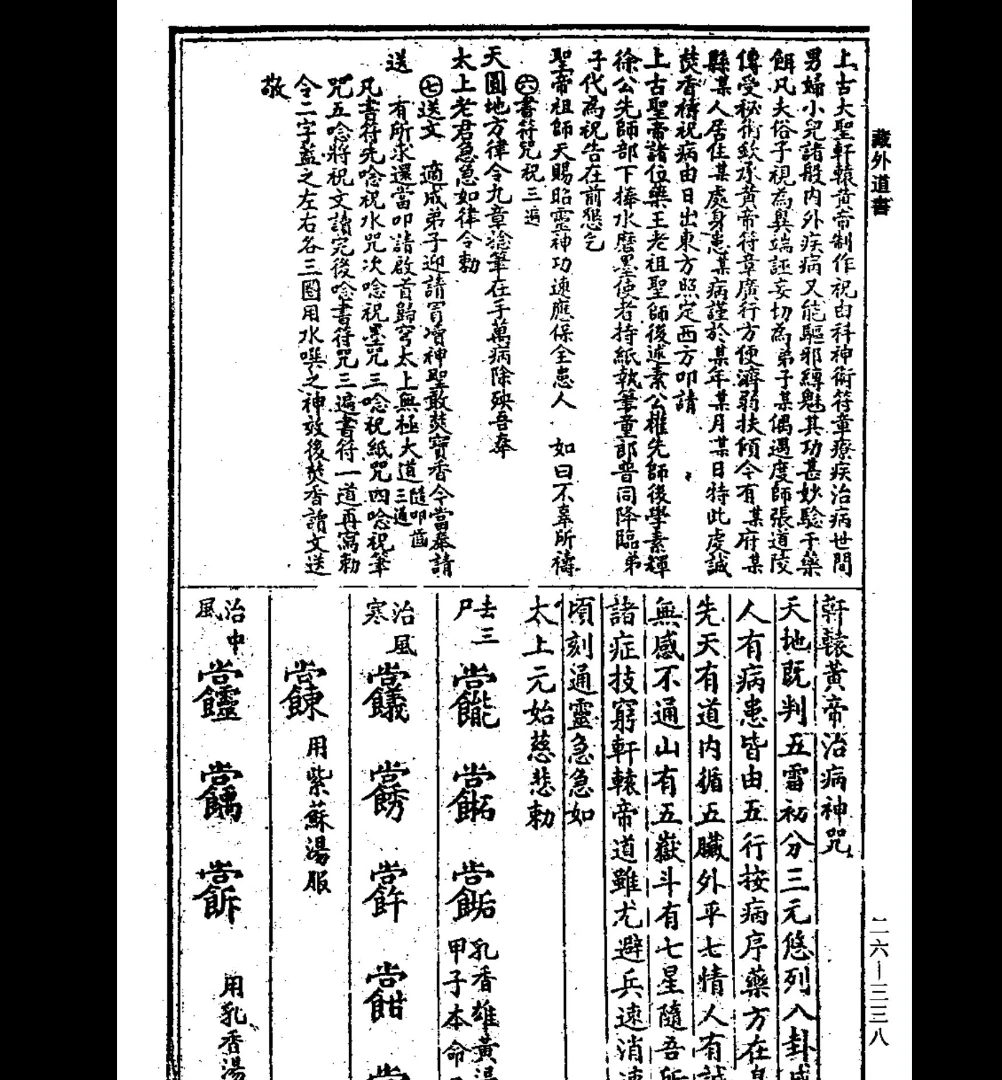 藏外道書
上古大聖軒轅黃帝制作祝由科神術符章療疾治病世間
男婦小兒諸般內外疾病又能驅邪縛魅其功甚妙驗于藥
餌凡夫俗子視為異端誣妄切為弟子某偶遇度師張道陵
傳受秘術欽承黃帝符章廣行方便濟弱扶傾今有某府某
縣某人居住某處身患某病謹於某年某月某日特此虔誠
焚香禱祝病由日出東方照定西方叩請
上古聖帝諸位藥王老祖聖師後述素公權先師後學素輝
徐公先師部下捧水磨墨使者持紙執筆童郎普同降臨弟
子代為祝告在前懇乞
聖帝祖師天賜昭靈神功速應保全患人 如曰不辜所禱
㊅書符咒祝三遍
天圓地方律令九章捻筆在手萬病除殃吾奉
太上老君急急如律令勅
㊆送文 適成弟子迎請冐瀆神聖敢焚寶香今當奉請
送 有所求還當叩請啟首歸穹太上無極大道三遍 隨叩齒
凡書符先唸祝水咒次唸祝墨咒三唸祝紙咒四唸祝筆
咒五唸將祝文讀完後唸書符咒三遍書符一道再寫勅
令二字蓋之左右各三圈用水噀之神效後焚香讀文送
敬
軒轅黃帝治病神咒
天地既判五雷初分三元悠列八卦成
人有病患皆由五行按病序藥方在
先天有道內循五臟外平七情人有誠
無感不通山有五嶽斗有七星隨吾所
諸症技窮軒轅帝道雖尤避兵速消速
頃刻通靈急急如
太上元始慈悲勅
去三尸
乳香雄黃湯
甲子本命
治風寒
用紫蘇湯服
治中風
用乳香湯
二六—三三八